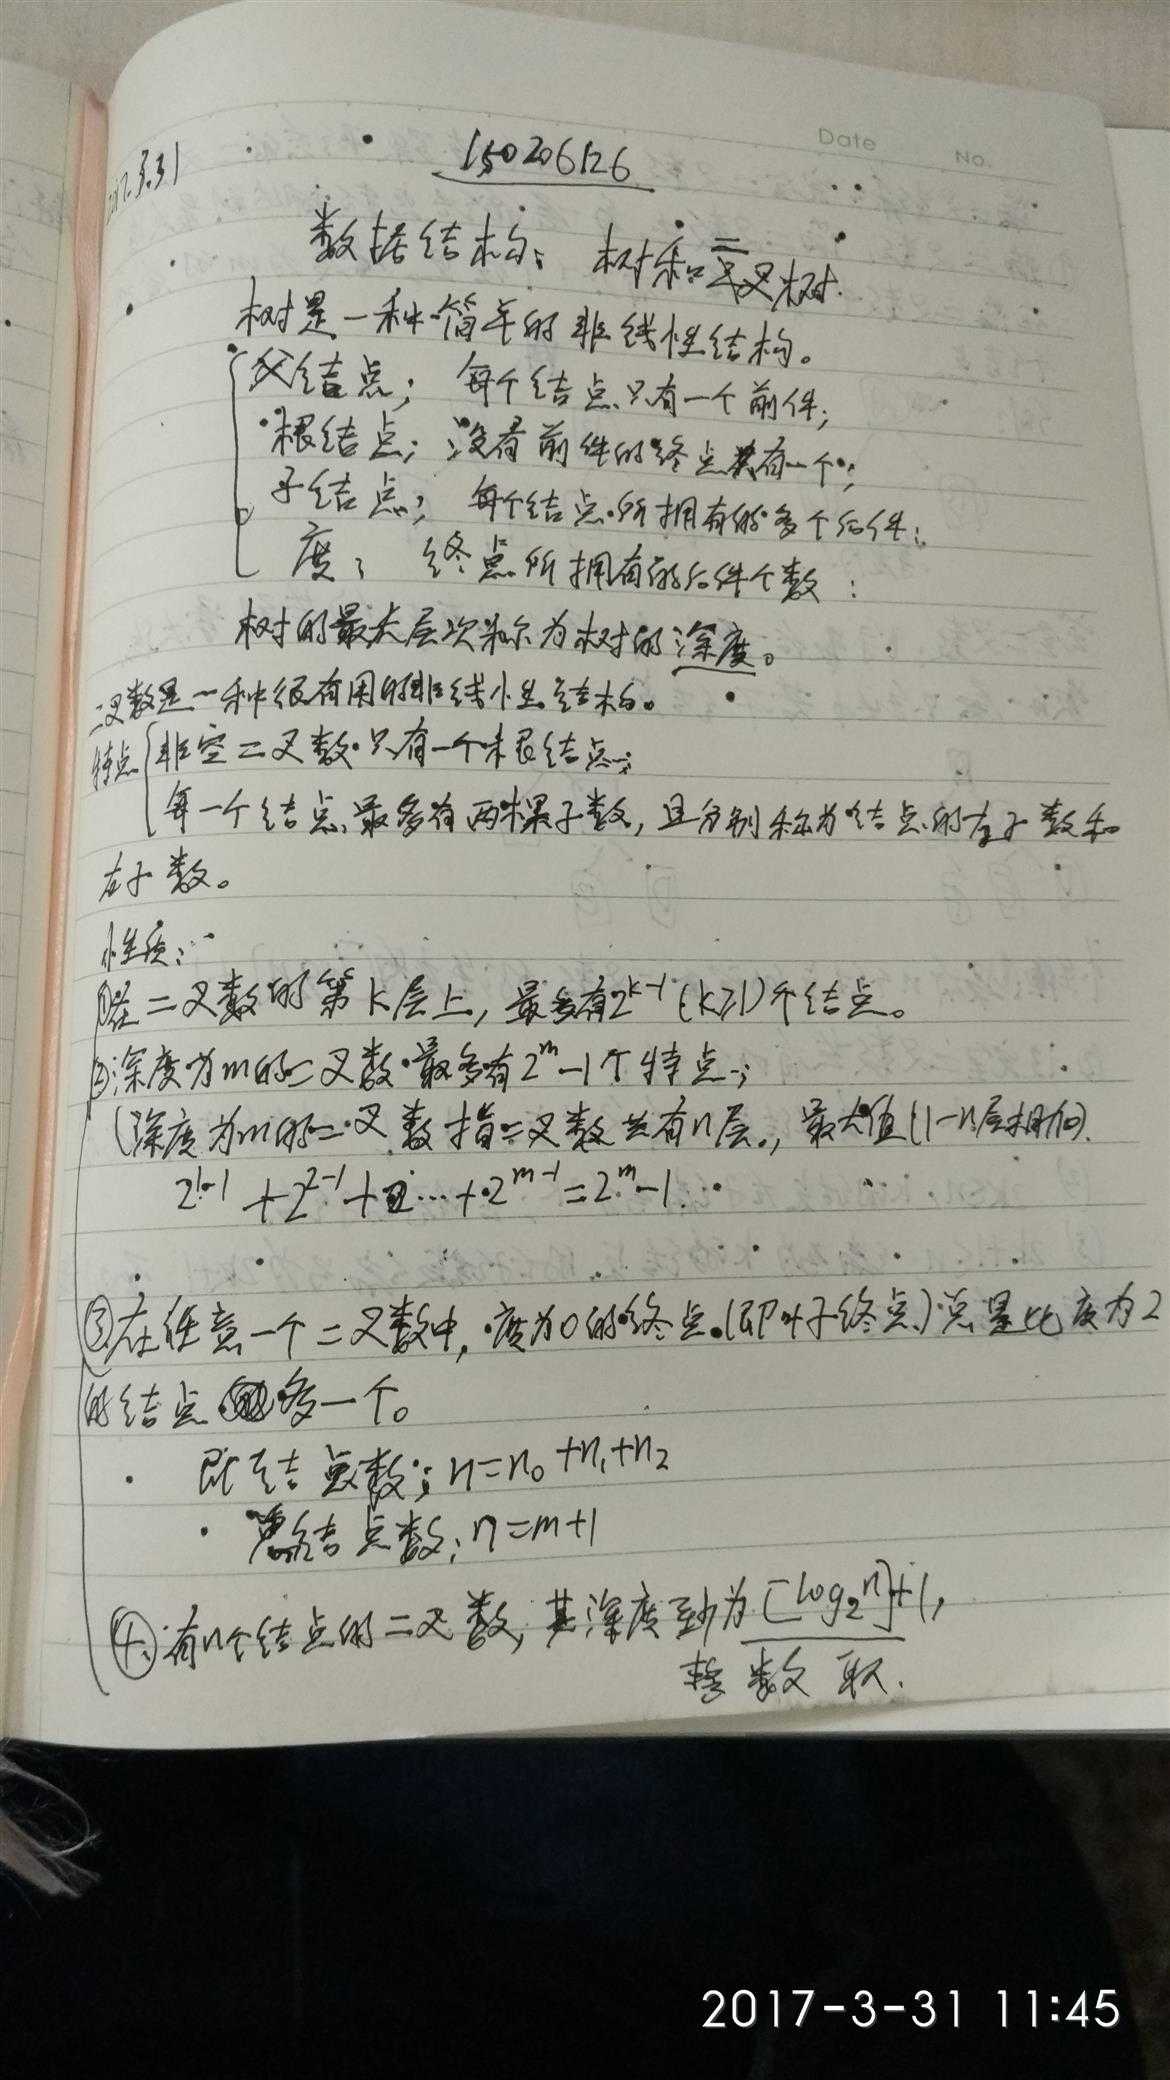 Date No.
2017.3.31
150206126
数据结构: 树和二叉树.
树是一种简单的非线性结构。
父结点; 每个结点只有一个前件;
根结点; 没有前件的终点只有一个;
子结点; 每个结点所拥有的多个后件;
度; 终点所拥有的后件个数:
树的最大层次称为树的深度。
二叉数是一种很有用的非线性结构。
特点 非空二叉数只有一个根结点;
每一个结点最多有两棵子数, 且分别称为结点的左子数和
右子数。
性质:
①在二叉数的第k层上, 最多有2^{k-1}(k≥1)个结点。
②深度为m的二叉数最多有2^m-1个特点;
(深度为m的二叉数指二叉数共有n层., 最大值(1-n层相加).
2^{1-1}+2^{2-1}+2…+2^{m-1}=2^m-1.
③在任意一个二叉数中, 度为0的终点(即叶子终点)总是比度为2
的结点多一个。
即结点数; n=n₀+n₁+n₂
总结点数; n=m+1
④.有n个结点的二叉数, 其深度至少为[log₂n]+1,
整数取.
2017-3-31 11:45